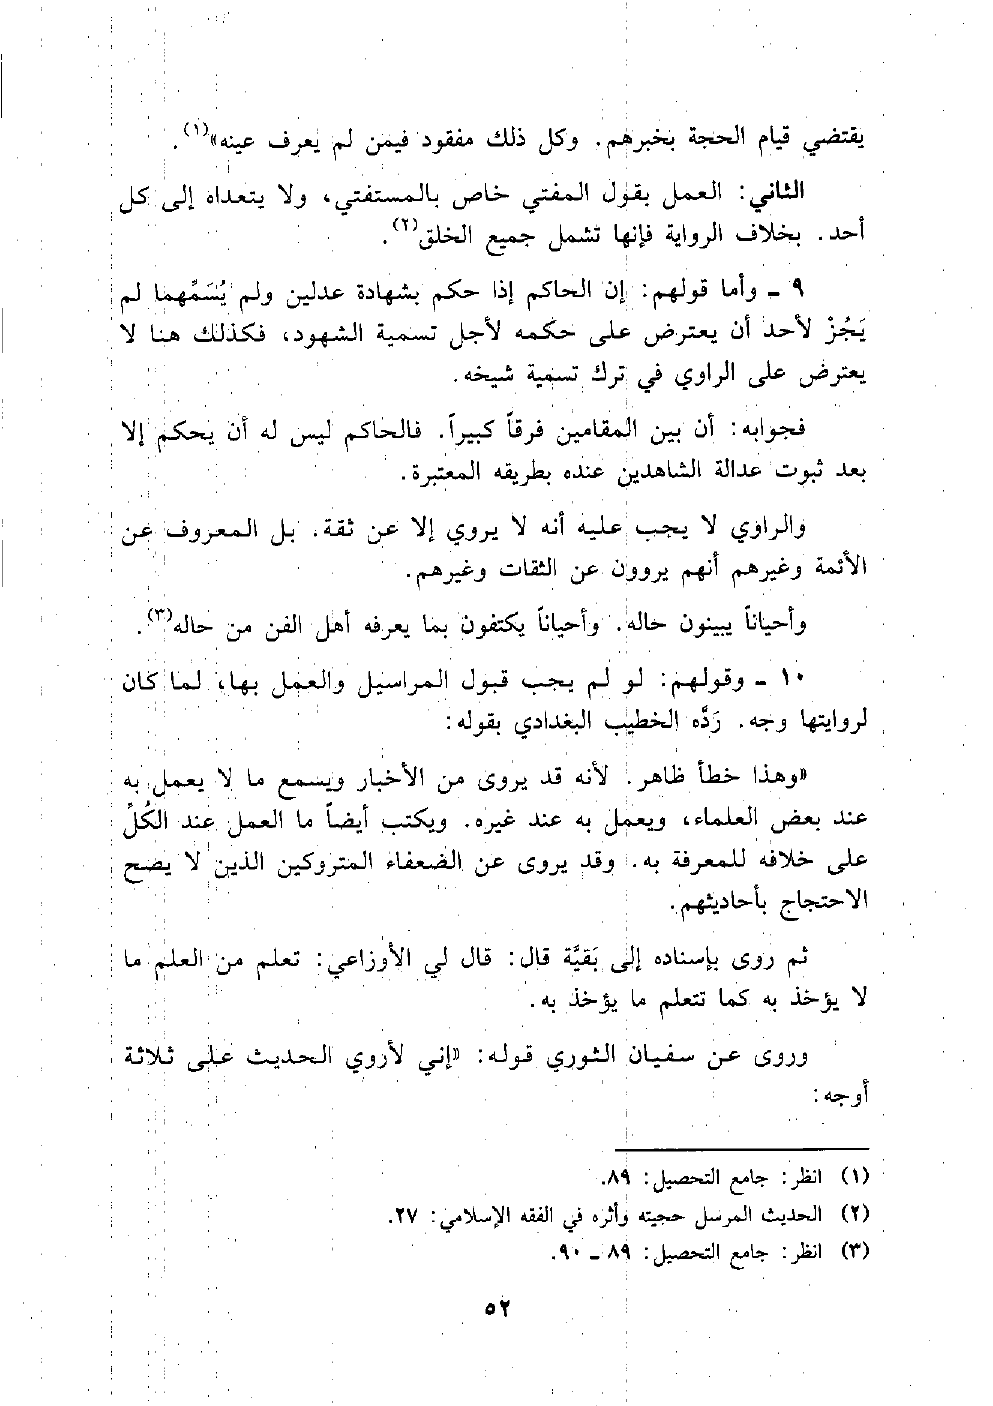 يقتضي قيام الحجة بخبرهم. وكل ذلك مفقود فيمن لم يعرف عينه»(١).
الثاني: العمل بقول المفتي خاص بالمستفتي، ولا يتعداه إلى كل
أحد. بخلاف الرواية فإنها تشمل جميع الخلق(٢).
٩ - وأما قولهم: إن الحاكم إذا حكم بشهادة عدلين ولم يُسَمِّهما لم
يَجُزْ لأحد أن يعترض على حكمه لأجل تسمية الشهود، فكذلك هنا لا
يعترض على الراوي في ترك تسمية شيخه.
فجوابه: أن بين المقامين فرقاً كبيراً. فالحاكم ليس له أن يحكم إلا
بعد ثبوت عدالة الشاهدين عنده بطريقه المعتبرة.
والراوي لا يجب عليه أنه لا يروي إلا عن ثقة. بل المعروف عن
الأئمة وغيرهم أنهم يروون عن الثقات وغيرهم.
وأحياناً يبينون حاله. وأحياناً يكتفون بما يعرفه أهل الفن من حاله(٣).
١٠ - وقولهم: لو لم يجب قبول المراسيل والعمل بها، لما كان
لروايتها وجه. رَدَّه الخطيب البغدادي بقوله:
«وهذا خطأ ظاهر. لأنه قد يروى من الأخبار ويسمع ما لا يعمل به
عند بعض العلماء، ويعمل به عند غيره. ويكتب أيضاً ما العمل عند الكُلِّ
على خلافه للمعرفة به. وقد يروى عن الضعفاء المتروكين الذين لا يصح
الاحتجاج بأحاديثهم.
ثم روى بإسناده إلى بَقيَّة قال: قال لي الأوزاعي: تعلم من العلم ما
لا يؤخذ به كما تتعلم ما يؤخذ به.
وروى عن سفيان الثوري قوله: «إني لأروي الحديث على ثلاثة
أوجه:
(١) انظر: جامع التحصيل: ٨٩.
(٢) الحديث المرسل حجيته وأثره في الفقه الإسلامي: ٢٧.
(٣) انظر: جامع التحصيل: ٨٩ - ٩٠.
٥٢